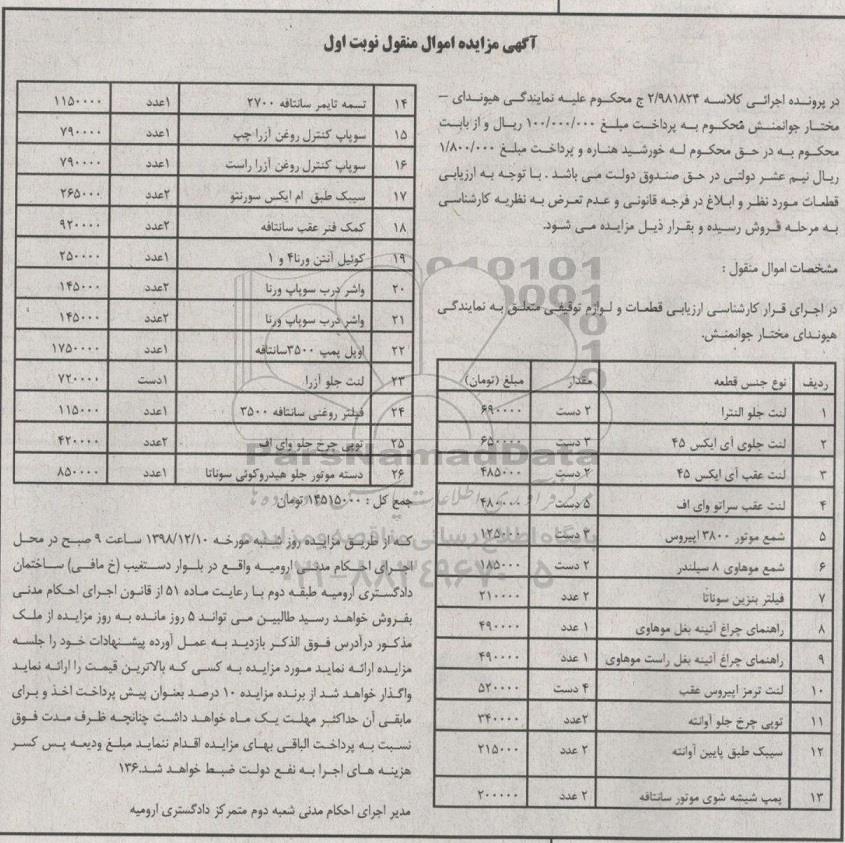 آگهی مزایده اموال منقول نوبت اول
در پرونده اجرائی کلاسه ۲/۹۸۱۸۲۴ ج محکوم علیه نمایندگی هیوندای –
مختار جوانمنش محکوم به پرداخت مبلغ ۱۰۰/۰۰۰/۰۰۰ ریال و از بابت
محکوم به در حق محکوم له خورشید هناره و پرداخت مبلغ ۱/۸۰۰/۰۰۰
ریال نیم عشر دولتی در حق صندوق دولت می باشد . با توجه به ارزیابی
قطعات مورد نظر و ابلاغ در فرجه قانونی و عدم تعرض به نظریه کارشناسی
به مرحله فروش رسیده و بقرار ذیل مزایده می شود.
مشخصات اموال منقول :
در اجرای قرار کارشناسی ارزیابی قطعات و لوازم توقیفی متعلق به نمایندگی
هیوندای مختار جوانمنش.
ردیف نوع جنس قطعه مقدار مبلغ (تومان)
۱ لنت جلو النترا ۲ دست ۶۹۰۰۰۰
۲ لنت جلوی آی ایکس ۴۵ ۳ دست ۶۵۰۰۰۰
۳ لنت عقب آی ایکس ۴۵ ۲ دست ۴۸۵۰۰۰
۴ لنت عقب سراتو وای اف ۵ دست ۴۸۰۰۰۰
۵ شمع موتور ۳۸۰۰ اپیروس ۳ دست ۱۲۵۰۰۰
۶ شمع موهاوی ۸ سیلندر ۲ دست ۱۸۵۰۰۰
۷ فیلتر بنزین سوناتا ۲ عدد ۲۱۰۰۰۰
۸ راهنمای چراغ آئینه بغل موهاوی ۱ عدد ۴۹۰۰۰۰
۹ راهنمای چراغ آئینه بغل راست موهاوی ۱ عدد ۴۹۰۰۰۰
۱۰ لنت ترمز اپیروس عقب ۴ دست ۵۲۰۰۰۰
۱۱ توپی چرخ جلو آوانته ۲عدد ۳۴۰۰۰۰
۱۲ سیبک طبق پایین آوانته ۲ عدد ۲۱۵۰۰۰
۱۳ پمپ شیشه شوی موتور سانتافه ۲ عدد ۲۰۰۰۰۰
۱۴ تسمه تایمر سانتافه ۲۷۰۰ ۱عدد ۱۱۵۰۰۰۰
۱۵ سوپاپ کنترل روغن آزرا چپ ۱عدد ۷۹۰۰۰۰
۱۶ سوپاپ کنترل روغن آزرا راست ۱عدد ۷۹۰۰۰۰
۱۷ سیبک طبق ام ایکس سورنتو ۲عدد ۲۶۵۰۰۰
۱۸ کمک فنر عقب سانتافه ۲عدد ۹۲۰۰۰۰
۱۹ کوئیل آنتن ورنا۴ و ۱ ۱عدد ۲۵۰۰۰۰
۲۰ واشر درب سوپاپ ورنا ۲عدد ۱۴۵۰۰۰
۲۱ واشر درب سوپاپ ورنا ۲عدد ۱۴۵۰۰۰
۲۲ اویل پمپ ۳۵۰۰سانتافه ۱عدد ۱۷۵۰۰۰۰
۲۳ لنت جلو آزرا ۱دست ۷۲۰۰۰۰
۲۴ فیلتر روغنی سانتافه ۳۵۰۰ ۱عدد ۱۱۵۰۰۰
۲۵ توپی چرخ جلو وای اف ۲عدد ۴۲۰۰۰۰
۲۶ دسته موتور جلو هیدروکوئی سوناتا ۱عدد ۸۵۰۰۰۰
جمع کل : ۱۴۵۱۵۰۰۰ تومان
که از طریق مزایده روز شنبه مورخه ۱۳۹۸/۱۲/۱۰ ساعت ۹ صبح در محل
اجرای احکام مدنی ارومیه واقع در بلوار دستغیب (خ مافی) ساختمان
دادگستری ارومیه طبقه دوم با رعایت ماده ۵۱ از قانون اجرای احکام مدنی
بفروش خواهد رسید طالبین می تواند ۵ روز مانده به روز مزایده از ملک
مذکور درآدرس فوق الذکر بازدید به عمل آورده پیشنهادات خود را جلسه
مزایده ارائه نماید مورد مزایده به کسی که بالاترین قیمت را ارائه نماید
واگذار خواهد شد از برنده مزایده ۱۰ درصد بعنوان پیش پرداخت اخذ و برای
مابقی آن حداکثر مهلت یک ماه خواهد داشت چنانچه ظرف مدت فوق
نسبت به پرداخت الباقی بهای مزایده اقدام ننماید مبلغ ودیعه پس کسر
هزینه های اجرا به نفع دولت ضبط خواهد شد.۱۳۶
مدیر اجرای احکام مدنی شعبه دوم متمرکز دادگستری ارومیه
ParsNamadData
پایگاه اطلاع رسانی مناقصه و مزایده
۰۲۱-۸۸۳۴۹۶۷۰-۵